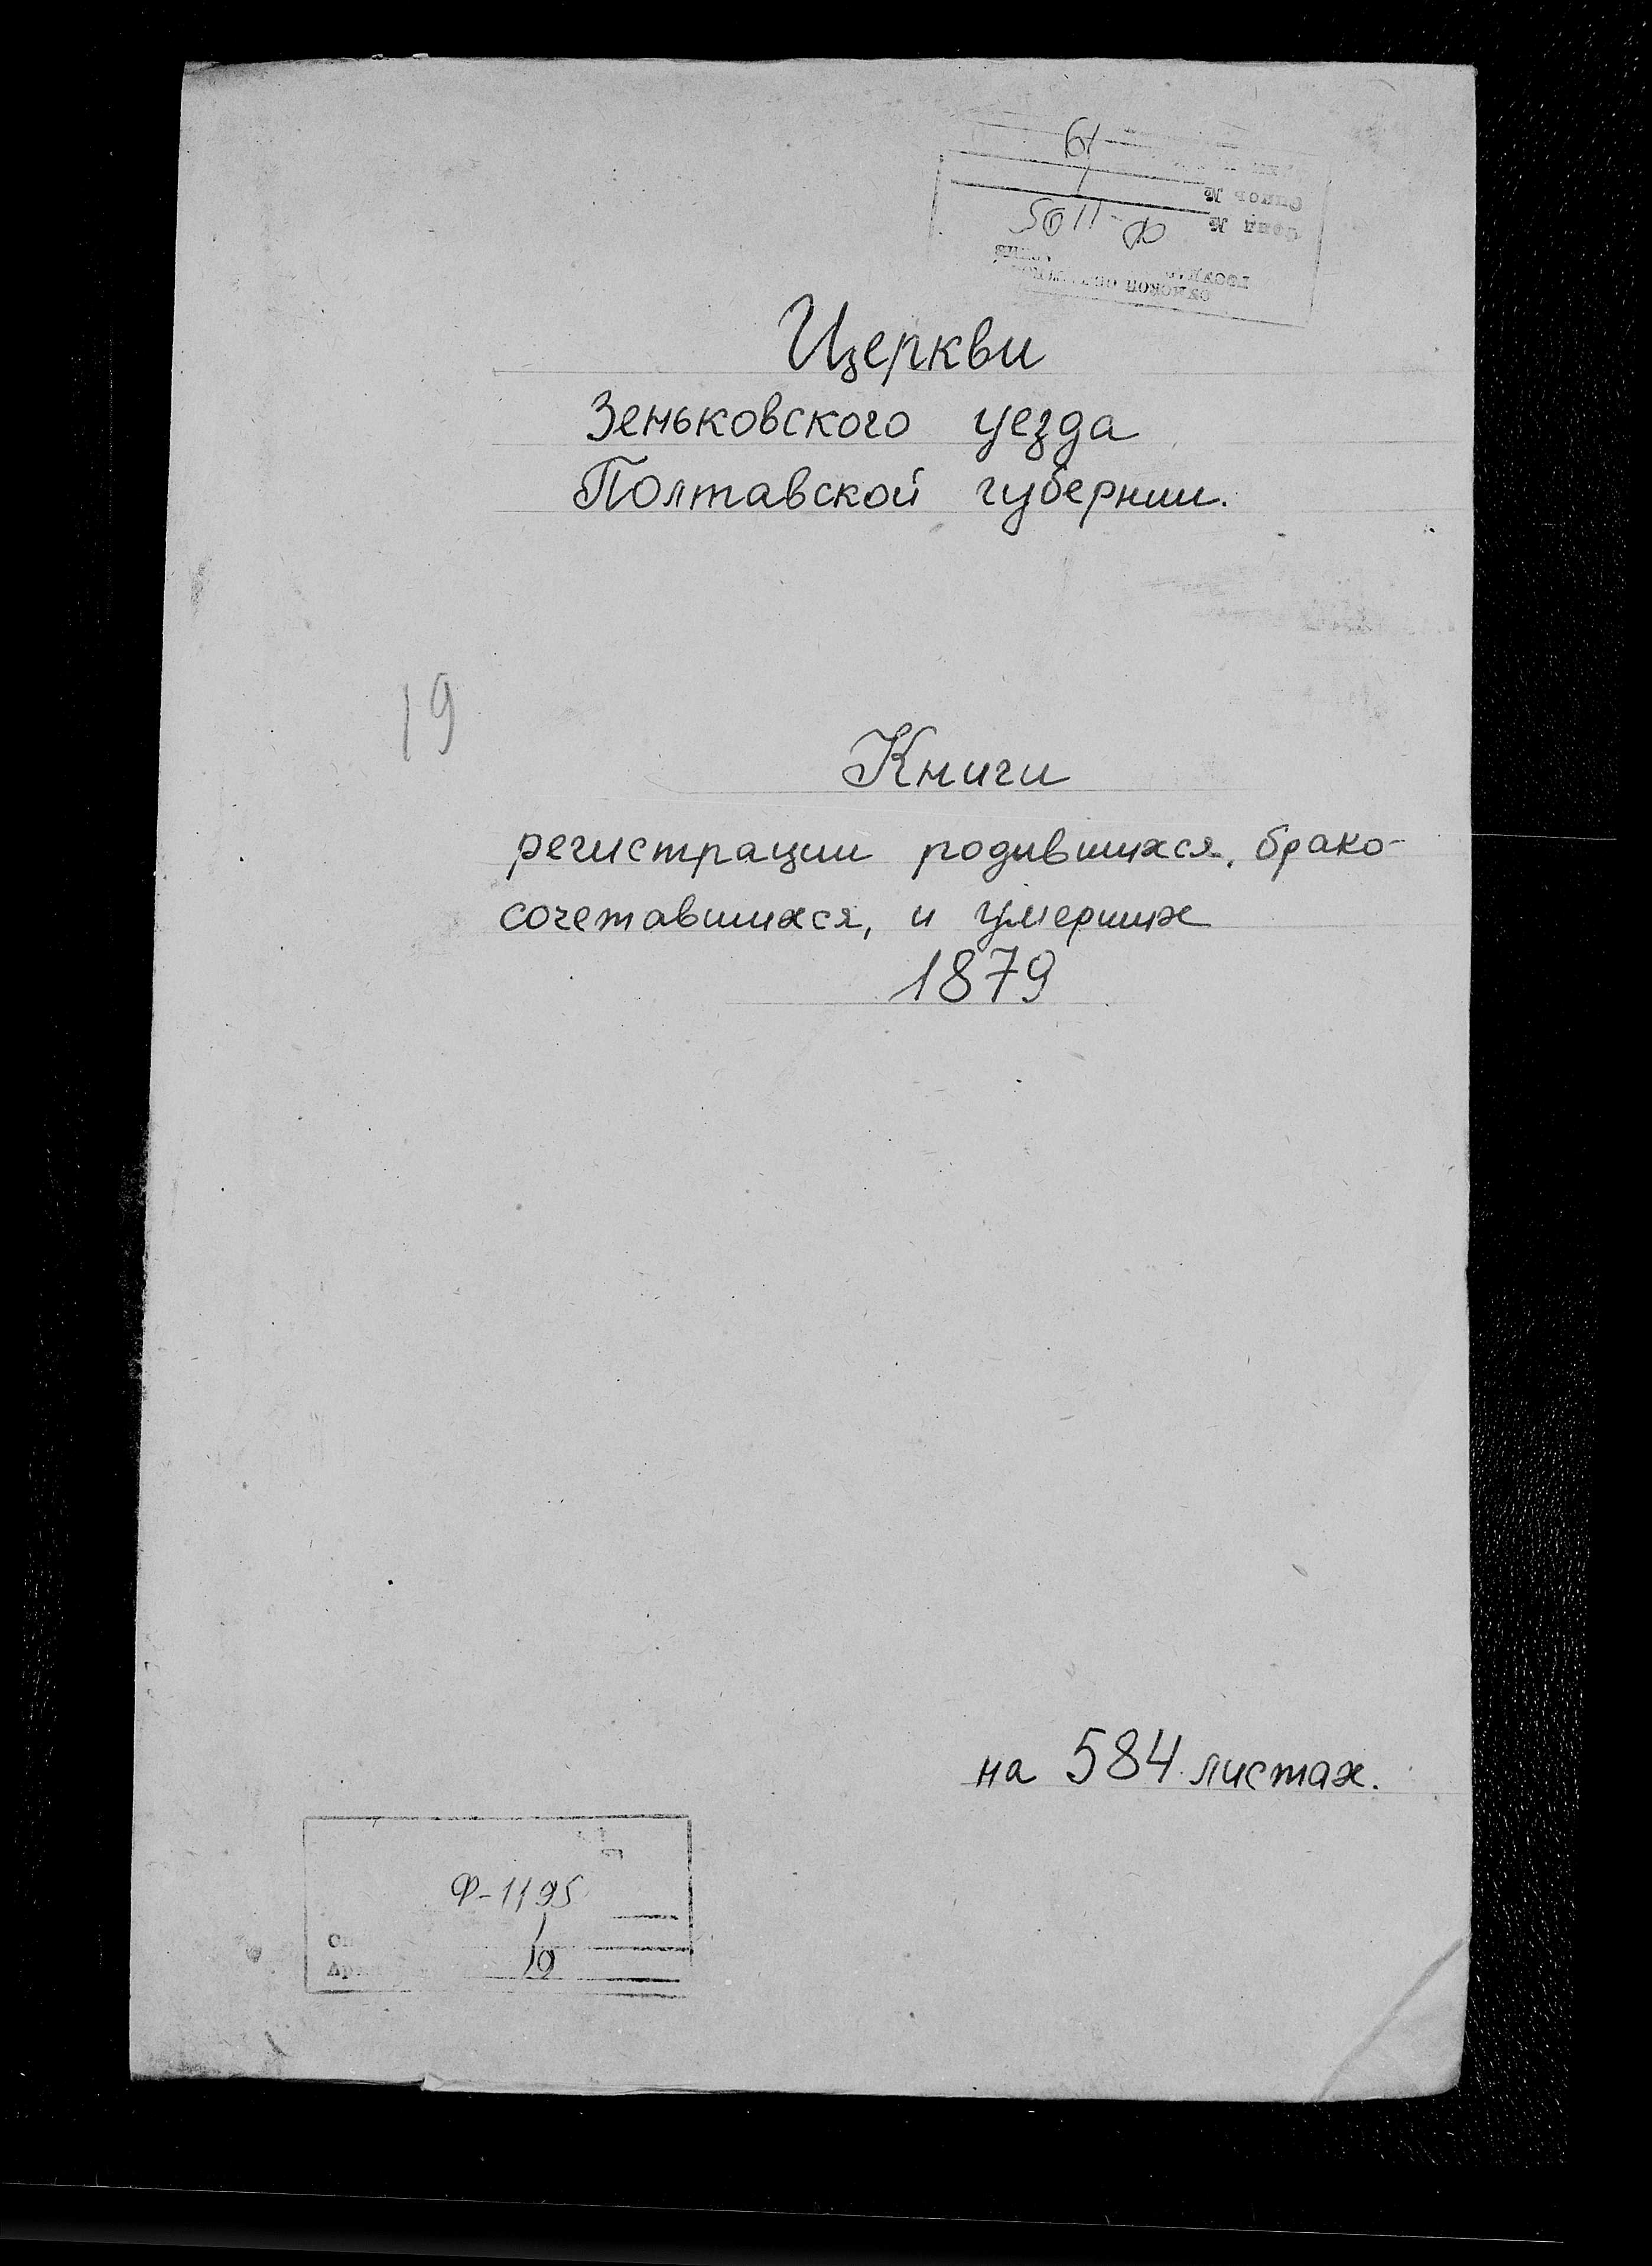 Церкви
Зеньковского уезда
Полтавской губернии.
19
Книги
регистрации родившихся, брако-
сочетавшихся, и умерших
1879
на 584 листах.
Ф-1195
19